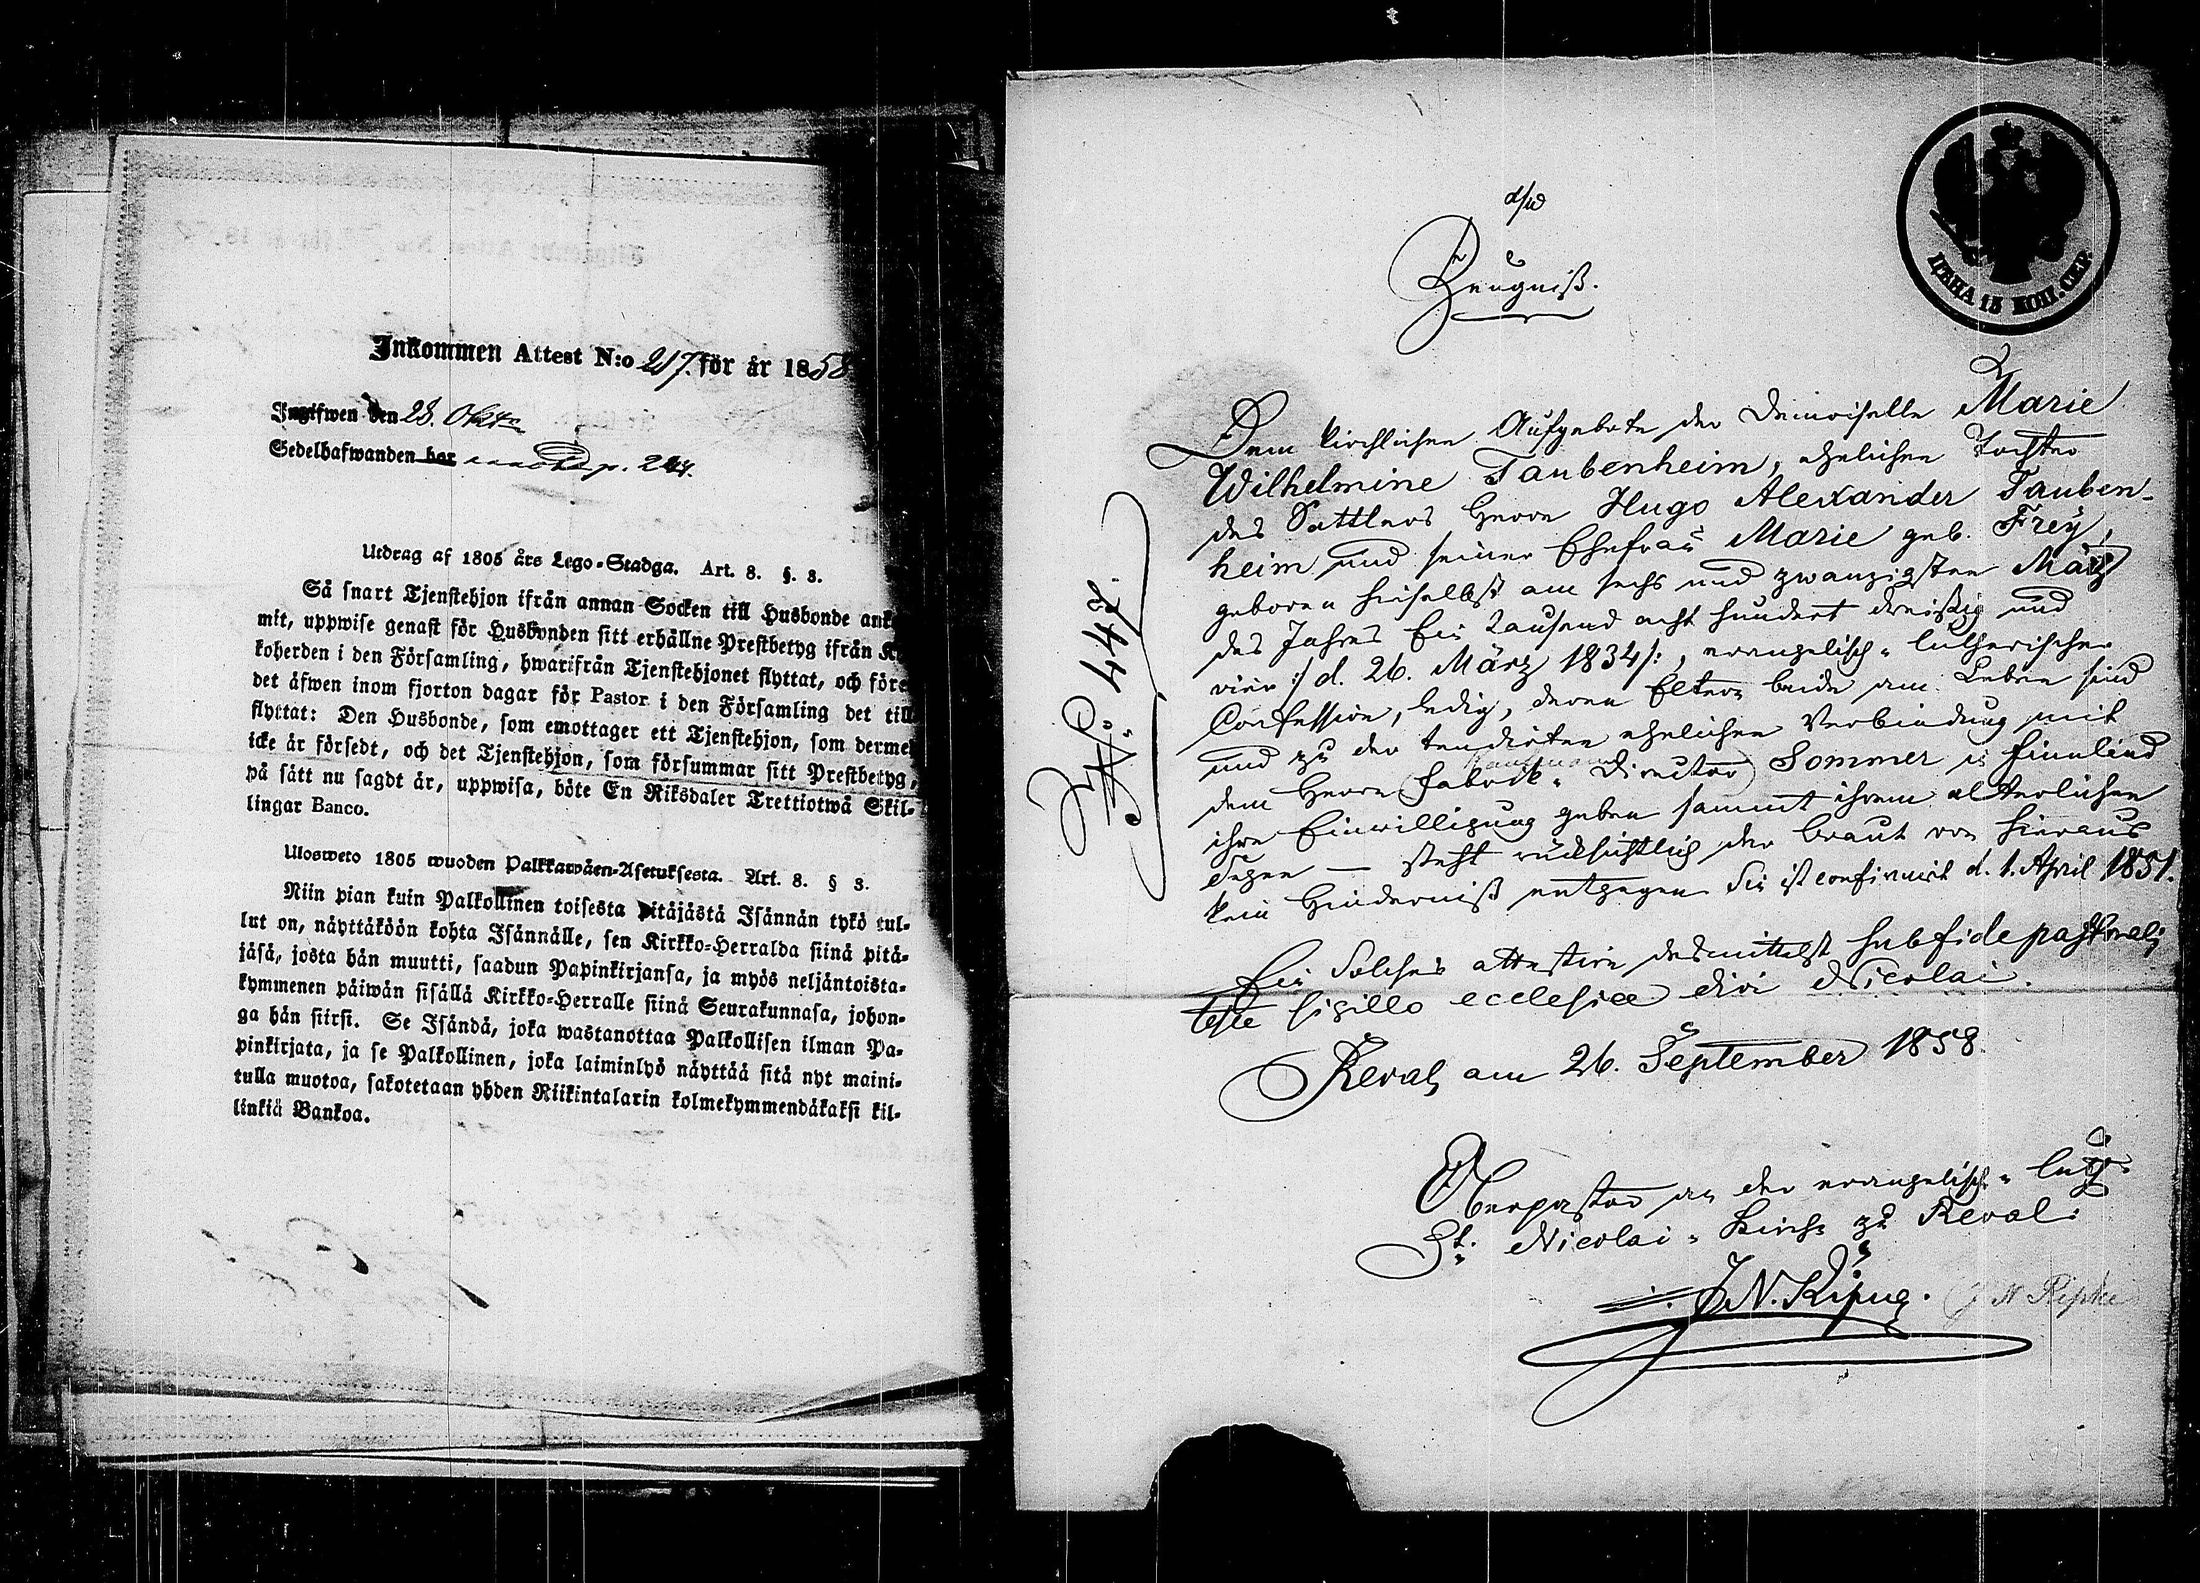 Inkommen Attest N:o 217. för år 1858
Ingifwen den 28. Oktr
Sedelhafwanden har
Utdrag af 1805 års Lego-Stadga. Art. 8. §. 3.
Så snart Tjenstehjon ifrån annan Socken till Husbonde ank
mit, uppwise genast för Husbonden sitt erhållne Prestbetyg ifrån K
koherden i den Församling, hwarifrån Tjenstehjonet flyttat, och före
det äfwen inom fjorton dagar för Pastor i den Församling det till
flyttat: Den Husbonde, som emottager ett Tjenstehjon, som derme
icke är försedt, och det Tjenstehjon, som försummar sitt Prestbetyg,
på sätt nu sagdt är, uppwisa, böte En Riksdaler Trettiotwå Skil-
lingar Banco.
Ulosweto 1805 wuoden Palkkawäen-Asetuksesta. Art. 8. § 3.
Niin pian kuin Palkollinen toisesta pitäjästä Isännän tykö tul-
lut on, näyttäköön kohta Isännälle, sen Kirkko-Herralda siinä pitä-
jäsä, josta hän muutti, saadun Papinkirjansa, ja myös neljäntoista-
kymmenen päiwän sisällä Kirkko-Herralle siinä Seurakunnasa, johon-
ga hän siirsi. Se Isändä, joka wastanottaa Palkollisen ilman Pa-
pinkirjata, ja se Palkollinen, joka laiminlyö näyttää sitä nyt maini-
tulla muotoa, sakotetaan yhden Riikintalarin kolmekymmendäkaksi kil-
linkiä Bankoa.
ЦѢНА 15 КОП. СЕР.
Zeugniß.
No. 448.
Dem kirchlichen Aufgebote der Demoiselle Marie
Wilhelmine Taubenheim, ehelichen Tochter
des Sattlers Herrn Hugo Alexander Tauben-
heim und seiner Ehefrau Marie geb. Frey,
geboren hieselbst am sechs und zwanzigsten März
des Jahres Ein Tausend acht hundert dreißig und
vier :/ d. 26. März 1834 /:, evangelisch-lutherischer
Confession, ledig, deren Eltern beide am Leben sind
und zu der tendirten ehelichen Verbindung mit
Kaufmann
dem Herrn (Fabrik-Director) Sommer in Finnland
ihre Einwilligung geben sammt ihrem elterlichen
Segen — steht rücksichtlich der Braut von hieraus
kein Hinderniß entgegen. Sie ist confirmirt d. 1. April 1851.
Ein Solches attestire desmittelst sub fide pastorali
teste sigillo ecclesiae divi Nicolai.
Reval, am 26. September 1858.
Oberpastor an der evangelisch-luth.
St. Nicolai-Kirche zu Reval:
J N. Ripke. (J N Ripke